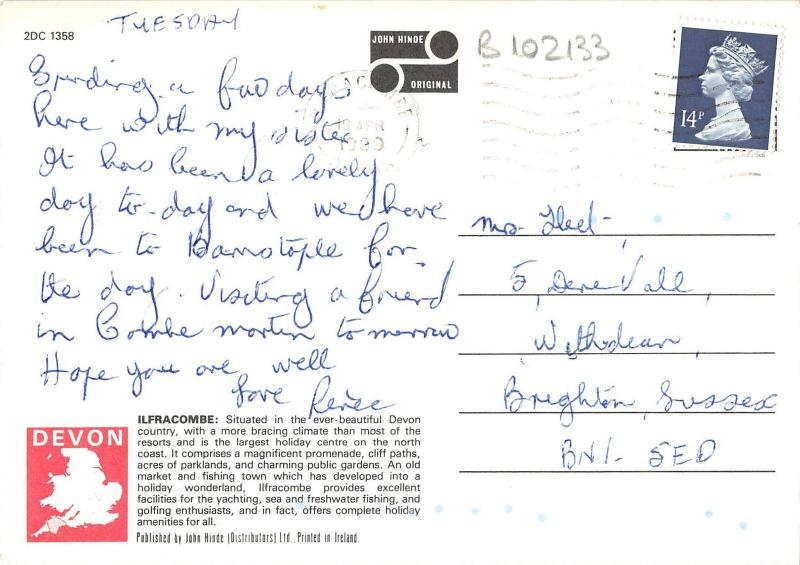 TUESDAY
2DC 1358
JOHN HINDE
ORIGINAL
B 102133
14P
Spending a few days
here with my sister
It has been a lovely
day to-day and we have
been to Barnstaple for
the day. Visiting a friend
in Combe martin to morrow
Hope you are well
love Renee
APR
1989
Mrs
5, Dene Vale,
Withdean,
Brighton, Sussex
BN1- 5ED
DEVON
ILFRACOMBE: Situated in the ever-beautiful Devon
country, with a more bracing climate than most of the
resorts and is the largest holiday centre on the north
coast. It comprises a magnificent promenade, cliff paths,
acres of parklands, and charming public gardens. An old
market and fishing town which has developed into a
holiday wonderland, Ilfracombe provides excellent
facilities for the yachting, sea and freshwater fishing, and
golfing enthusiasts, and in fact, offers complete holiday
amenities for all.
Published by John Hinde (Distributors) Ltd., Printed in Ireland.